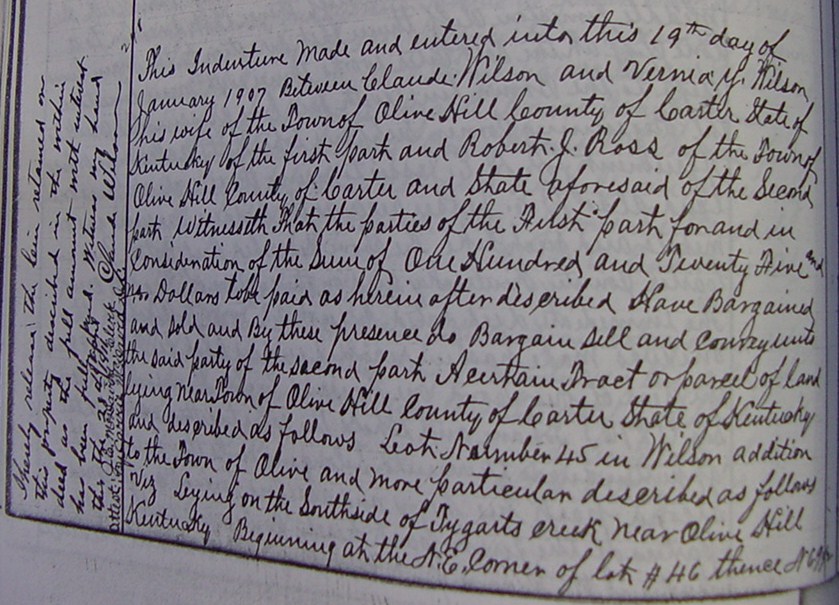 This Indenture Made and entered into this 19th day of
January 1907 Between Claude Wilson and Vernia Y. Wilson
his wife of the Town of Olive Hill County of Carter State of
Kentusky of the first part and Robert. J. Ross of the Town of
Olive Hill County of Carter and State aforesaid of the Second
part Witnesseth That the parties of the First part for and in
Consideration of the Sum of One Hundred and Twenty Five and
Dollars to be paid as herein after described Have Bargained
and sold and By these presence do Bargain Sell and convey unto
the said party of the second part A certain Tract or parcel of land
lying near Town of Olive Hill County of Carter State of Kentusky
and described as follows Lot Number 45 in Wilson addition
to the Town of Olive and more particular described as follows
viz Lying on the South side of Tygarts creek near Olive Hill
Kentusky Beginning at the N.E. Corner of lot # 46 thence N
I hereby release the lien retained on
this property described in the within
deed as the full amount with interest
has been fully Witness my hand
this the Claude Wilson
Attest